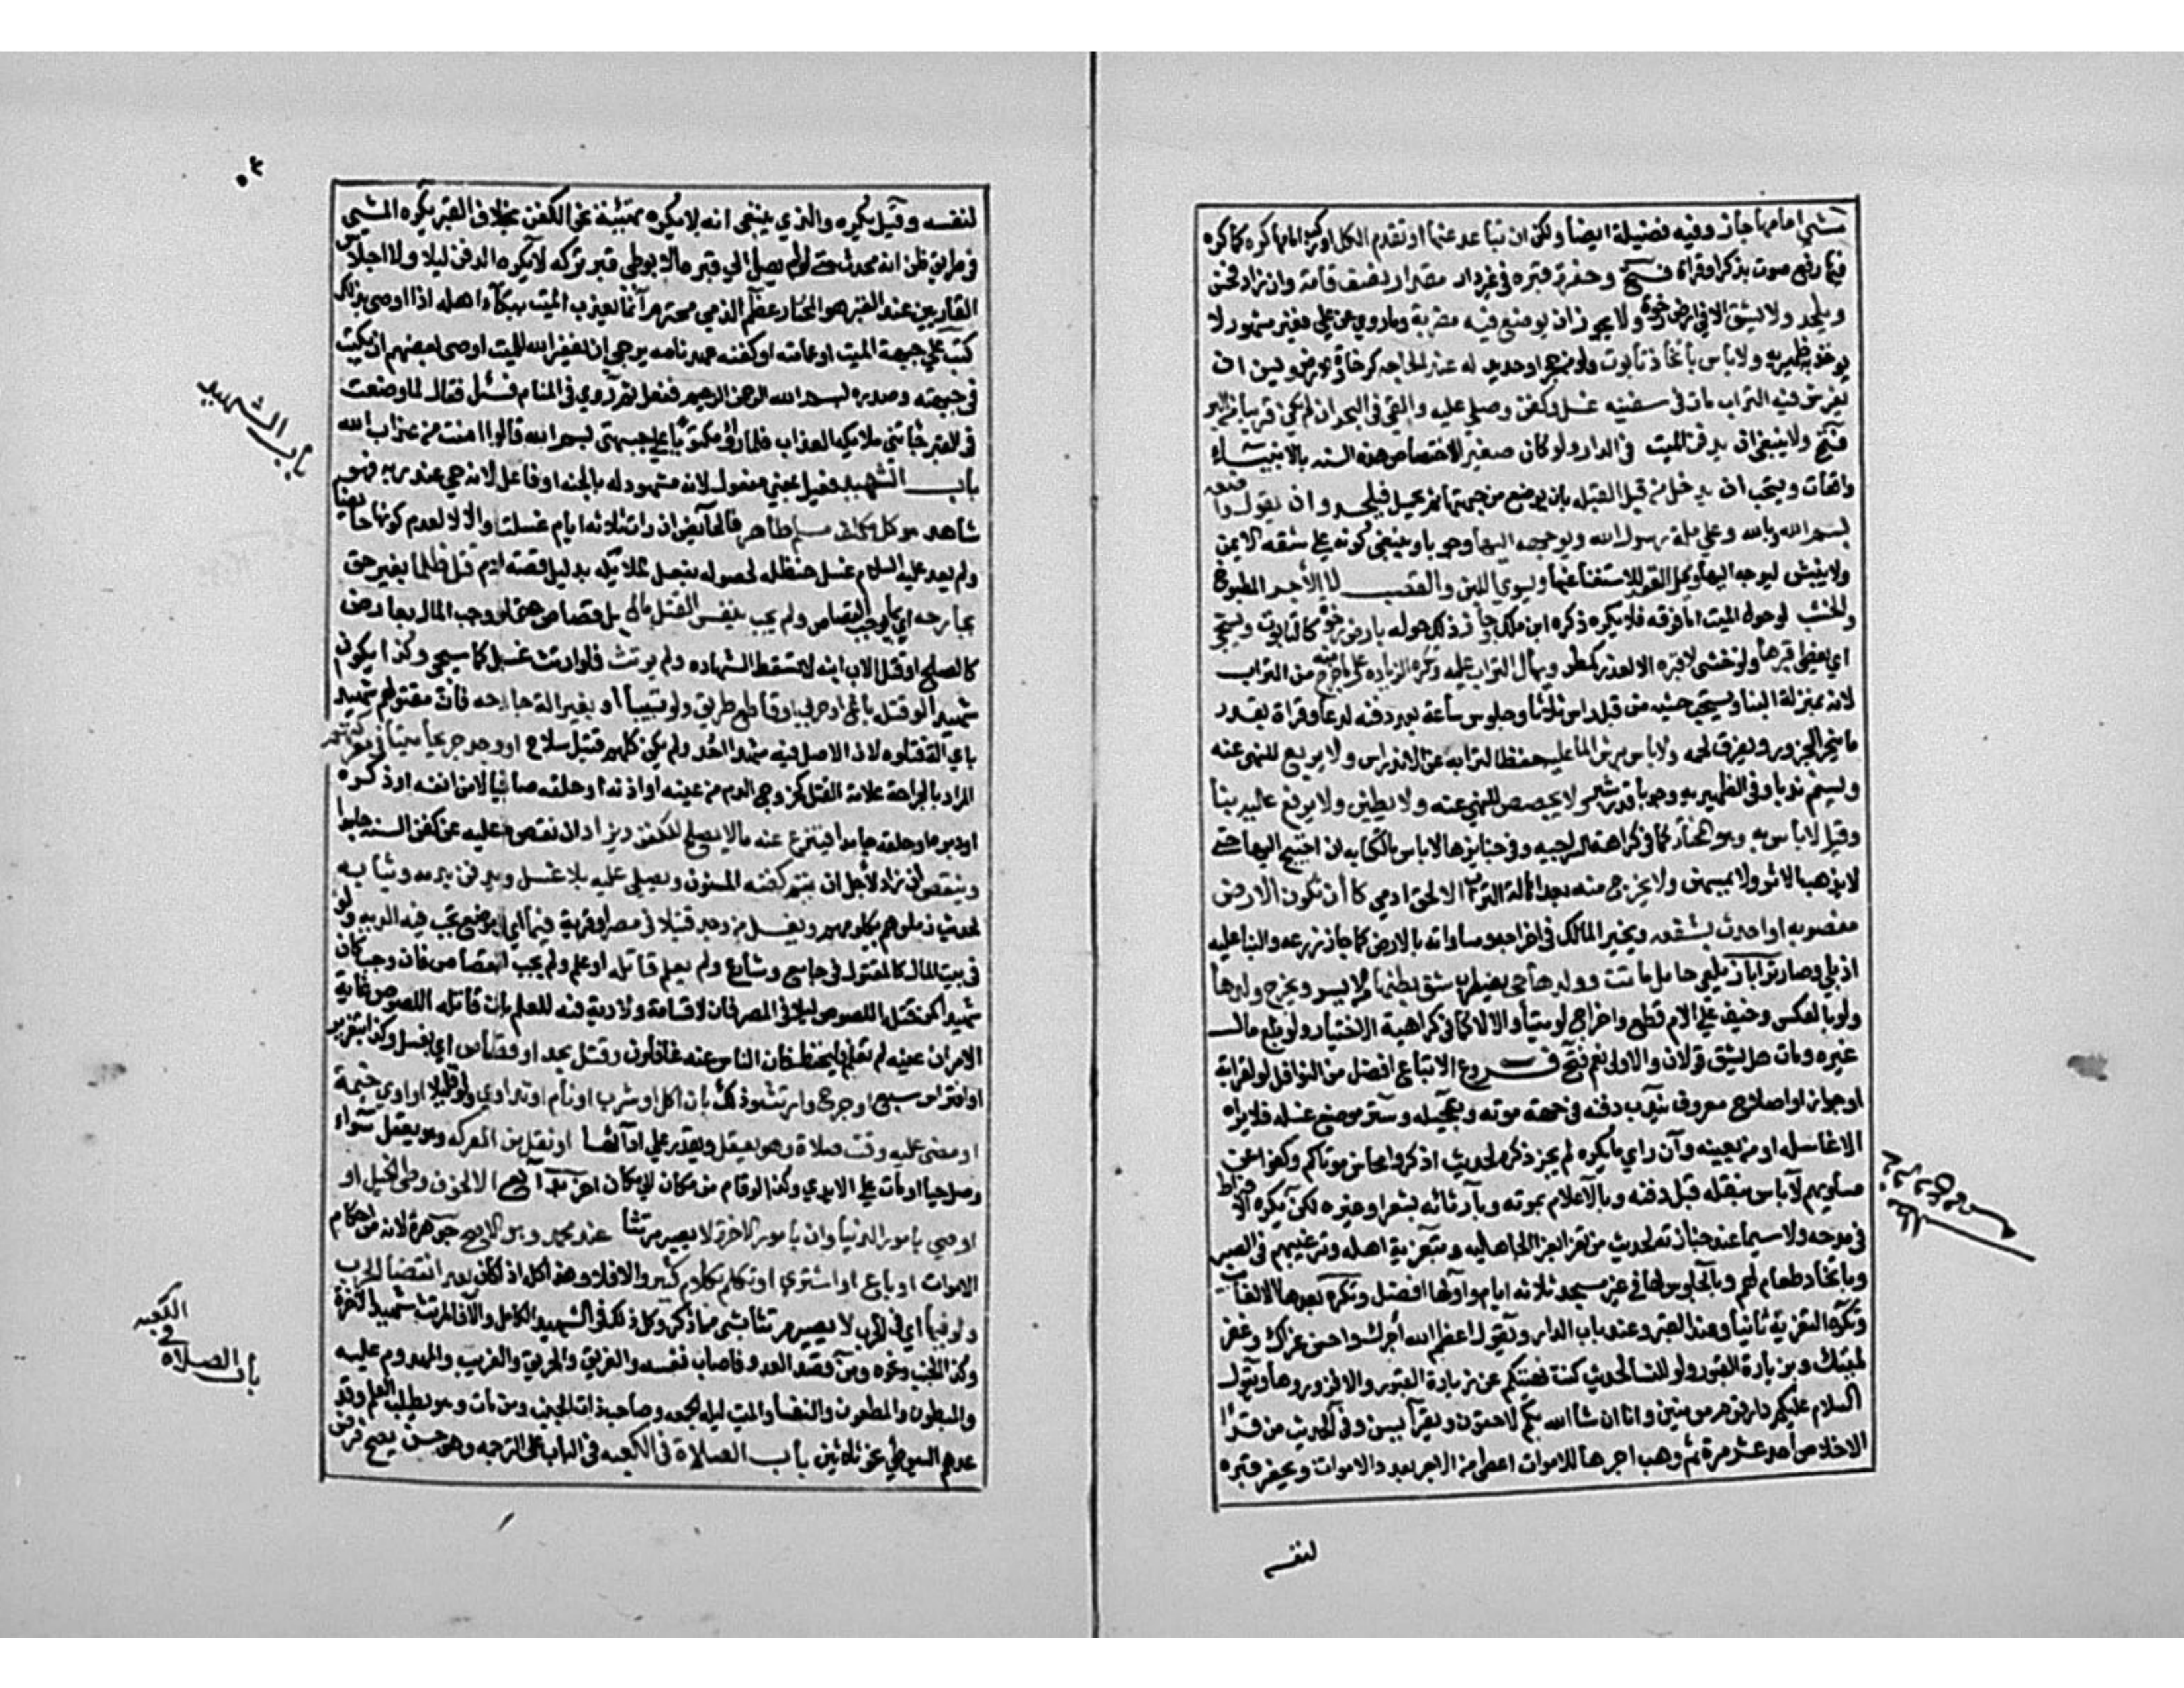 مشي امامها جاز وفيه فضيلة ايضا ولكن ان تباعد عنها او تقدم الكل او ركب امامها كره كما كره
فيها رفع صوت بذكر او قراة فتح وحفر قبره في غير دار مقدار نصف قامة وان زاد فحسن
ويلحد ولا يشق الا في ارض رخوة ولا يجوز ان يوضع فيه مضربة وما روي عن علي فغير مشهور لا
يوخذ به ظهيريه ولا باس باتخاذ تابوت ولو من حجر او حديد له عند الحاجه كرخاوة الارض ويسن ان
يفرش فيه التراب مات في سفينه غسل وكفن وصلي عليه والقي في البحر ان لم يكن قريبا من البر
فتح ولا ينبغي ان يدفن الميت في الدار ولو كان صغير لاختصاص هذه السنه بالانبياء
واقعات ويستحب ان يدخل من قبل القبله بان يوضع من جهتها ثم يحمل فيلحد وان يقول واضعه
بسم الله وبالله وعلي ملة رسول الله ويوجه اليها وجوبا وينبغي كونه علي شقه الايمن
ولا ينبش ليوجه اليها وتحل العقد للاستغنا عنها ويسوي اللبن والقصب لا الآجر المطبوخ
والخشب لو حول الميت اما فوقه فلا يكره ذكره ابن ملك وجاز ذلك حوله بارض رخوة كالتابوت ويسجي
اي يغطي قبرها ولو خنثى لا قبره الا لعذر كمطر ويهال التراب عليه وتكره الزياده على ما خرج منه من التراب
لانه بمنزلة البنا ويستحب حثيه من قبل راس ثلاثا وجلوس ساعة بعد دفنه لدعا وقراة بقدر
ما ينحر الجزور ويفرق لحمه ولا باس برش الما عليه حفظا لترابه عن الاندراس ولا يربع للنهي عنه
ويسنم ندبا وفي الظهيريه وجوبا قدر شبر ولا يجصص للنهي عنه ولا يطين ولا يرفع عليه بنا
وقيل لا باس به وهو المختار كما في كراهة السراجيه وفي جنايزها لا باس بالكتابه ان احتيج اليها حتى
لا يذهب الاثر ولا يمتهن ولا يخرج منه بعد اهالة التراب الا لحق ادمي كان تكون الارض
مغصوبه او اخذت بشفعه ويخير المالك في اخراجه ومساواته بالارض كما جاز زرعه والبنا عليه
اذا بلي وصار ترابا زيلعي حامل ماتت وولدها حي يضطرب شق بطنها من الايسر ويخرج ولدها
ولو بالعكس وخيف علي الام قطع واخرج لو ميتا والا لا كما في كراهية الاختيار ولو بلع مال
غيره ومات هل يشق قولان والاولى نعم فتح فروع الاتباع افضل من النوافل لو لقرابة
او جوار او صلاح معروف يندب دفنه في جهة موته وتعجيله وستر موضع غسله فلا يراه
الا غاسله او من يعينه وان راي ما يكره لم يجز ذكره لحديث اذكروا محاسن موتاكم وكفوا عن
مساويهم لا باس بنقله قبل دفنه وبالاعلام بموته وبارثائه بشعر او غيره لكن يكره الافراط
في مدحه ولا سيما عند جنازته لحديث من تعزا بعزا الجاهليه وبتعزية اهله وترغيبهم في الصبر
وباتخاذ طعام لهم وبالجلوس لها في غير مسجد ثلاثه ايام واولها افضل وتكره بعدها الا لغائب
وتكره التعزية ثانيا وعند القبر وعند باب الدار ويقول اعظم الله أجرك واحسن عزاك وغفر
لميتك وبزيارة القبور ولو للنسا لحديث كنت نهيتكم عن زيارة القبور والا فزوروها ويقول
السلام عليكم دار قوم مومنين وانا ان شا الله بكم لاحقون ويقرا يس وفي الحديث من قرا
الاخلاص احد عشر مرة ثم وهب اجرها للاموات اعطي من الاجر بعدد الاموات ويحفر قبره
لنفسه
لنفسه وقيل يكره والذي ينبغي انه لا يكره تهيئة نحو الكفن بخلاف القبر يكره المشي
في طريق ظن انه محدث حتى لو لم يصل الي قبره الا بوطي قبر تركه لا يكره الدفن ليلا ولا اجلاس
القاريين عند القبر هو المختار عظم الذمي محترم انما يعذب الميت ببكآء اهله اذا اوصى بذلك
كتب علي جبهة الميت او عمامته او كفنه عهد نامه يرجي ان يغفر الله للميت اوصى بعضهم ان يكتب
في جبهته وصدره بسم الله الرحمن الرحيم ففعل ثم رؤي في المنام فسئل فقال لما وضعت
في القبر جاتني ملايكه العذاب فلما راوا مكتوبا علي جبهتي بسم الله قالوا امنت من عذاب الله
باب الشهيد فعيل بمعنى مفعول لانه مشهود له بالجنه او فاعل لانه حي عند ربه فهو
شاهد هو كل مكلف مسلم طاهر فالحائض ان رات ثلاثه ايام غسلت والا لا لعدم كونها حايضا
ولم يعد عليه السلام غسل حنظله لحصوله بفعل الملائكه بدليل قصة ادم قتل ظلما بغير حق
بجارحه اي بما يوجب القصاص ولم يجب بنفس القتل مال بل قصاص حتى لو وجب المال بعارض
كالصلح او قتل الاب ابنه لا تسقط الشهاده ولم يرتث فلو ارتث غسل كما سيجي وكذا يكون
شهيدا لو قتله باغي او حربي او قاطع طريق ولو تسببا او بغير الة جارحه فان مقتولهم شهيد
باي الة قتلوه لان الاصل فيه شهدا احد ولم يكن كلهم قتيل سلاح او وجد جريحا ميتا في معركتهم
المراد بالجراحة علامة القتل كخروج الدم من عينه او اذنه او حلقه صافيا لا من انفه او ذكره
او دبره او حلقه جامدا فينزع عنه ما لا يصلح للكفن ويزاد ان نقص ما عليه عن كفن السنه
وينقص ان زاد لأجل ان يتم كفنه المسنون ويصلي عليه بلا غسل ويدفن بدمه وثيابه
لحديث زملوهم بكلومهم ويغسل من وجد قتيلا في مصر او قرية فيما اي في موضع تجب فيه الديه ولو
في بيت المال كالمقتول في جامع وشارع ولم يعلم قاتله او علم ولم يجب القصاص فان وجب كان
شهيدا كمن قتله اللصوص ليلا في المصر فان لا قسامة ولا دية فيه للعلم بان قاتله اللصوص غاية
الامر ان عينه لم تعلم فليحفظ فان الناس عنه غافلون وقتل بحد او قصاص اي يغسل وكذا بتعزير
او افتراس سبع او جرح وارتث وذلك بان اكل او شرب او نام او تداوي ولو قليلا او اوى خيمة
او مضى عليه وقت صلاة وهو يعقل ويقدر علي ادائها او نقل من المعركه وهو يعقل سوآء
وصل حيا او مات علي الايدي وكذا لو قام من مكان الي مكان اخر بدائع الا لخوف وطي الخيل او
اوصي بامور الدنيا وان بامور الاخرة لا يصير مرتثا عند محمد وهو الاصح جوهرة لانه من احكام
الاموات او باع او اشترى او تكلم بكلام كثير والا فلا وهذا كله اذا كان بعد انقضا الحرب
ولو فيها اي في الحرب لا يصير مرتثا بشي مما ذكر وكل ذلك في الشهيد الكامل والا فالمرتث شهيد الاخرة
وكذا الجنب ونحوه ومن قصد العدو فاصاب نفسه والغريق والحريق والغريب والمهدوم عليه
والمبطون والمطعون والنفسا والميت ليلة الجمعه وصاحب ذات الجنب ومن مات وهو يطلب العلم وقد
عدهم السيوطي نحو ثلاثين باب الصلاة في الكعبه في الباب على الترجمه وهو حسن يصح فرض
باب الشهيد
باب الصلاة
في
الكعبه